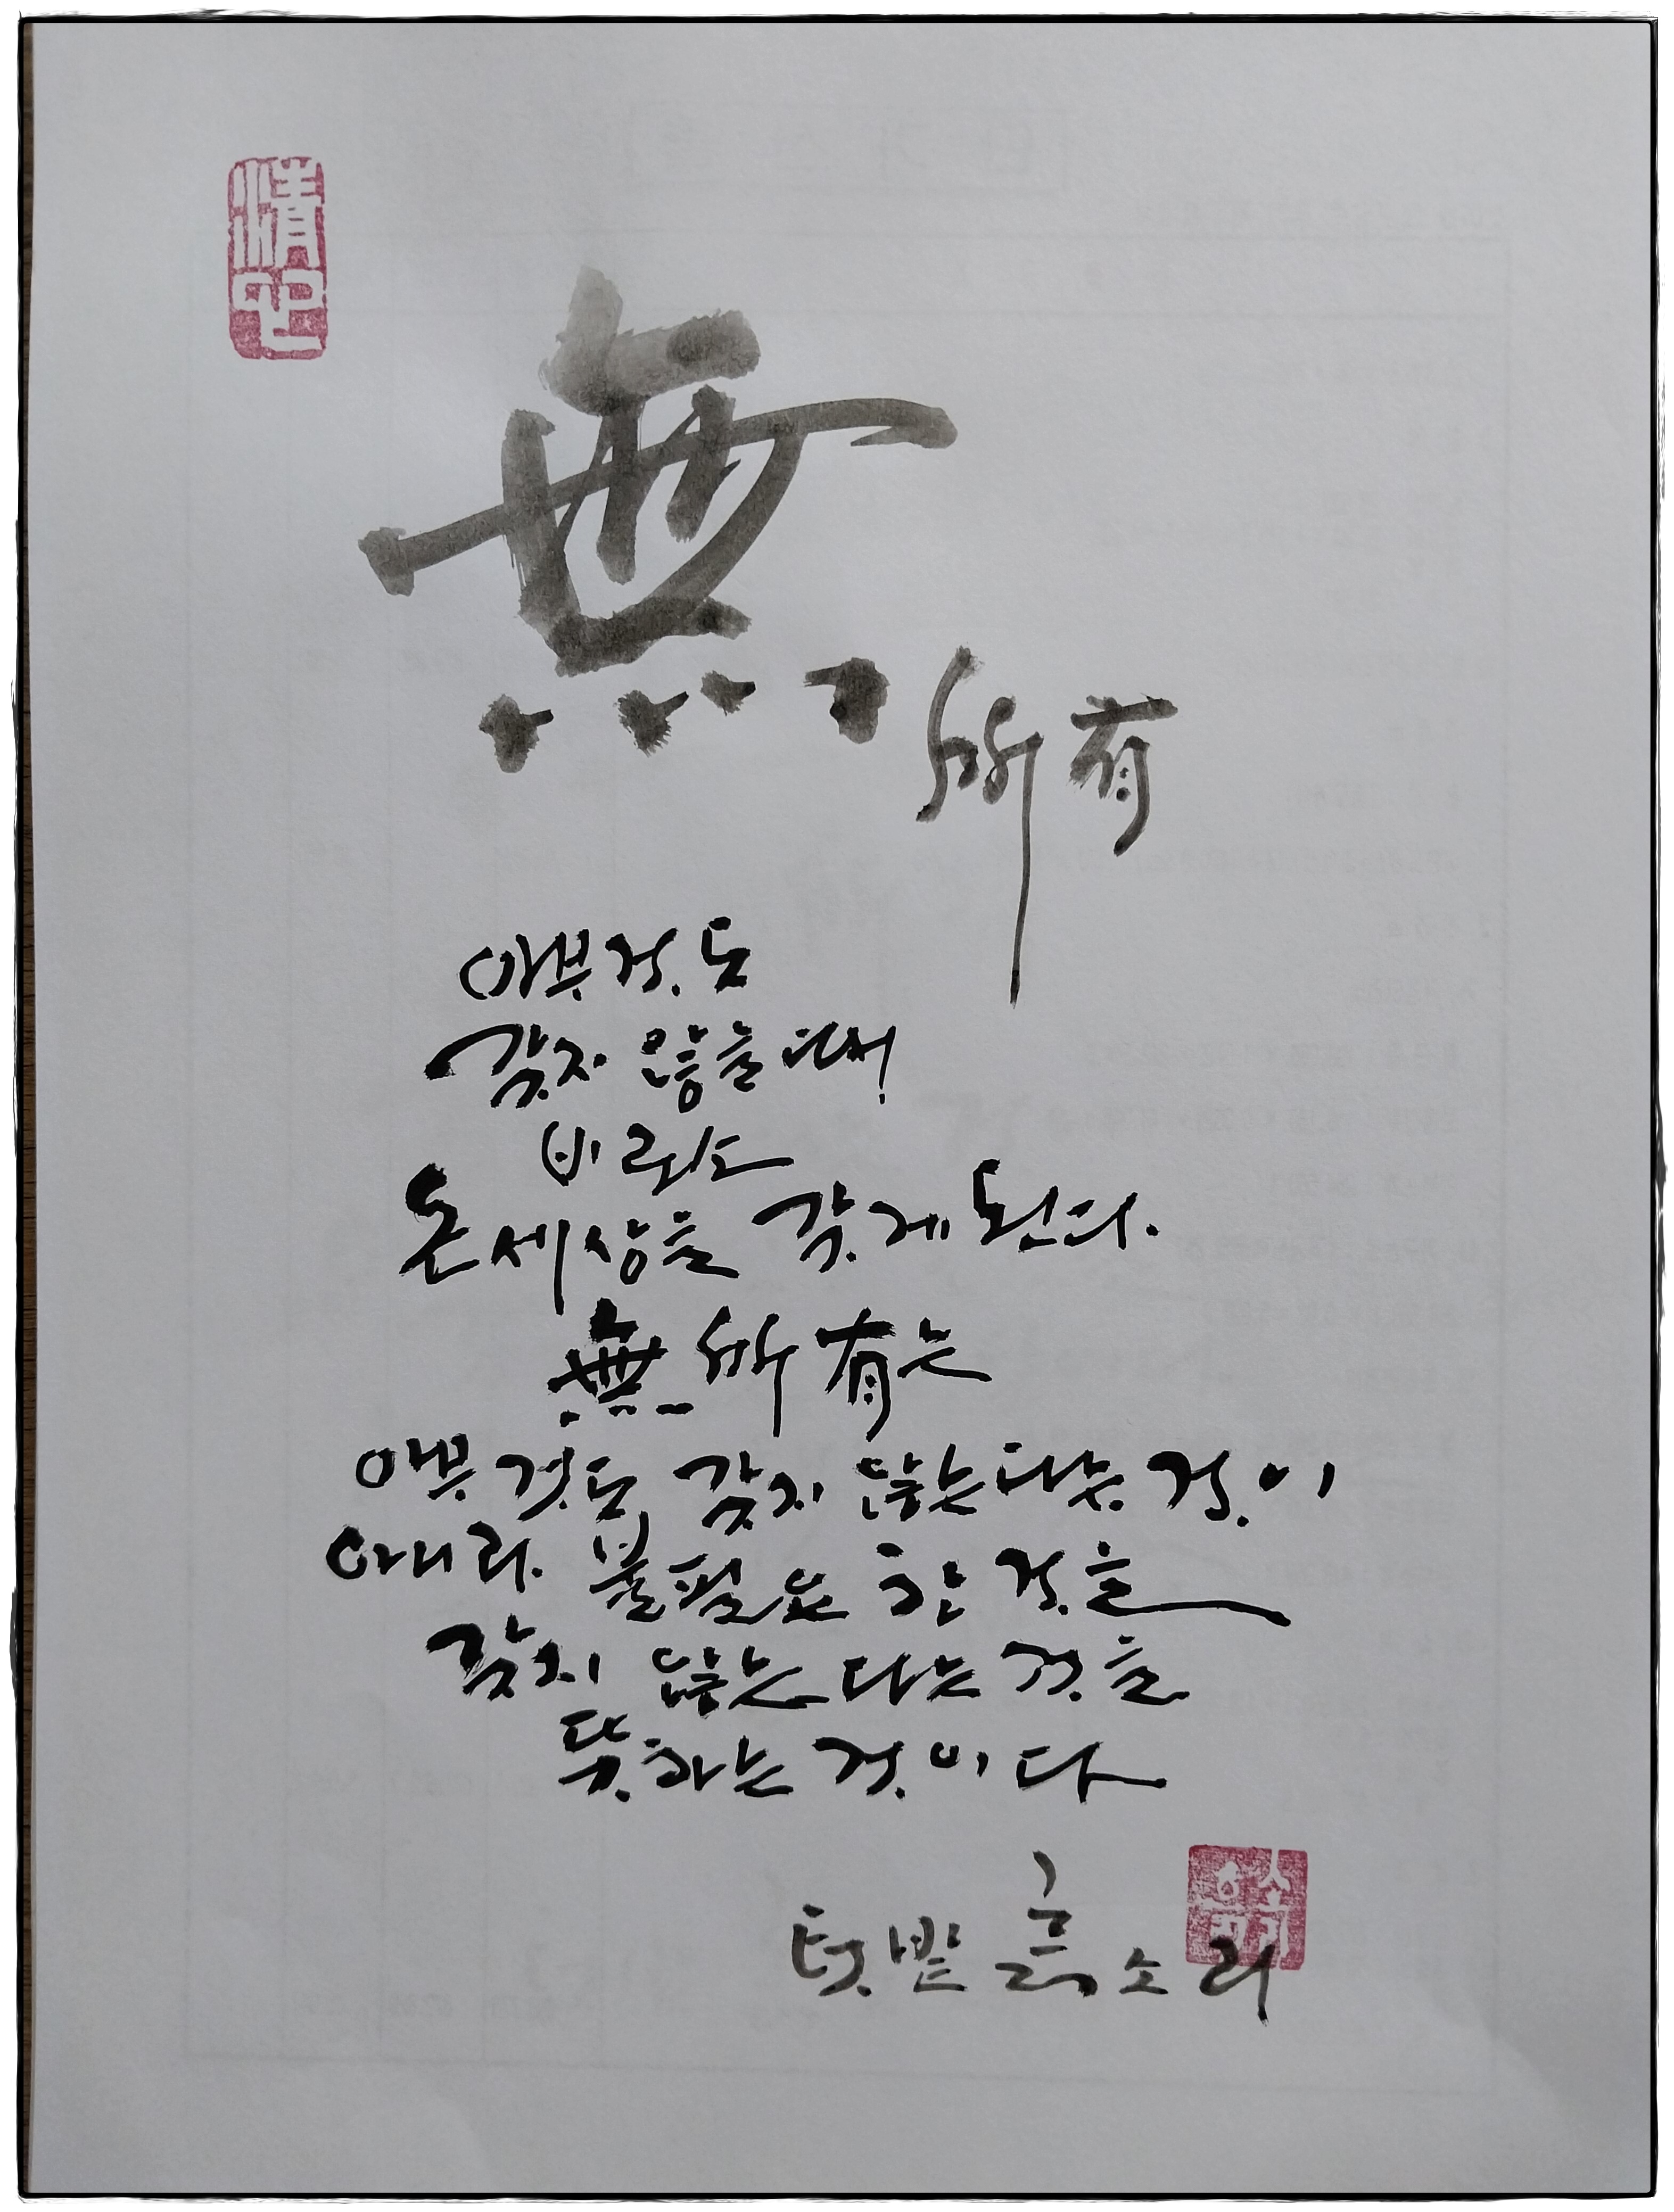 清心
無所有
아무것도
갖지 않을 때
비로소
온 세상을 갖게 된다.
無所有는
아무것도 갖지 않는다는 것이
아니라. 불필요한 것을
갖지 않는다는 것을
뜻하는 것이다
텃밭 흙소리
흙소리